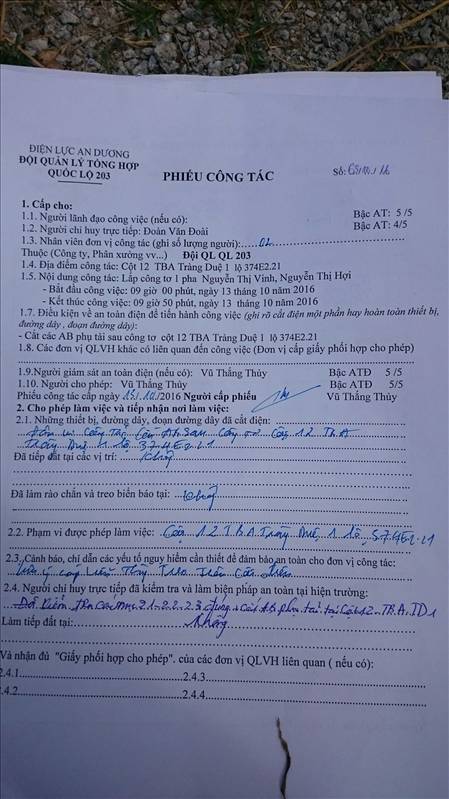 ĐIỆN LỰC AN DƯƠNG
ĐỘI QUẢN LÝ TỔNG HỢP
QUỐC LỘ 203
PHIẾU CÔNG TÁC
Số:
1. Cấp cho:
1.1. Người lãnh đạo công việc (nếu có): Bậc AT: 5 /5
1.2. Người chỉ huy trực tiếp: Đoàn Văn Đoài Bậc AT: 4/5
1.3. Nhân viên đơn vị công tác (ghi số lượng người):.....02
Thuộc (Công ty, Phân xưởng vv...) Đội QL QL 203
1.4. Địa điểm công tác: Cột 12 TBA Tràng Duệ 1 lộ 374E2.21
1.5. Nội dung công tác: Lắp công tơ 1 pha Nguyễn Thị Vinh, Nguyễn Thị Hợi
- Bắt đầu công việc: 09 giờ 00 phút, ngày 13 tháng 10 năm 2016
- Kết thúc công việc: 09 giờ 50 phút, ngày 13 tháng 10 năm 2016
1.7. Điều kiện về an toàn điện để tiến hành công việc (ghi rõ cắt điện một phần hay hoàn toàn thiết bị,
đường dây , đoạn đường dây):
- Cắt các AB phụ tải sau công tơ cột 12 TBA Tràng Duệ 1 lộ 374E2.21
1.8. Các đơn vị QLVH khác có liên quan đến công việc (Đơn vị cấp giấy phối hợp cho phép)
1.9.Người giám sát an toàn điện (nếu có): Vũ Thắng Thủy Bậc ATĐ 5 /5
1.10. Người cho phép: Vũ Thắng Thủy Bậc ATĐ 5/5
Phiếu công tác cấp ngày 13/.10./2016 Người cấp phiếu Vũ Thắng Thủy
2. Cho phép làm việc và tiếp nhận nơi làm việc:
2.1. Những thiết bị, đường dây, đoạn đường dây đã cắt điện:
Đơn vị Công Tác Cắt Ab Sau Công tơ Cột 12 TBA
Tràng Duệ 1 lộ 374E2.21
Đã tiếp đất tại các vị trí: không
Đã làm rào chắn và treo biển báo tại: không
2.2. Phạm vi được phép làm việc: Cột 12 TBA Tràng Duệ 1 lộ 374E2.21
2.3. Cảnh báo, chỉ dẫn các yếu tố nguy hiểm cần thiết để đảm bảo an toàn cho đơn vị công tác:
2.4. Người chỉ huy trực tiếp đã kiểm tra và làm biện pháp an toàn tại hiện trường:
Đã kiểm tra các mục 2.1-2.2-2.3 đúng + Cắt AB phụ tải tại Cột 12 TBA.TD1
Làm tiếp đất tại: không
Và nhận đủ "Giấy phối hợp cho phép". của các đơn vị QLVH liên quan ( nếu có):
2.4.1 2.4.3
.4.2 2.4.4